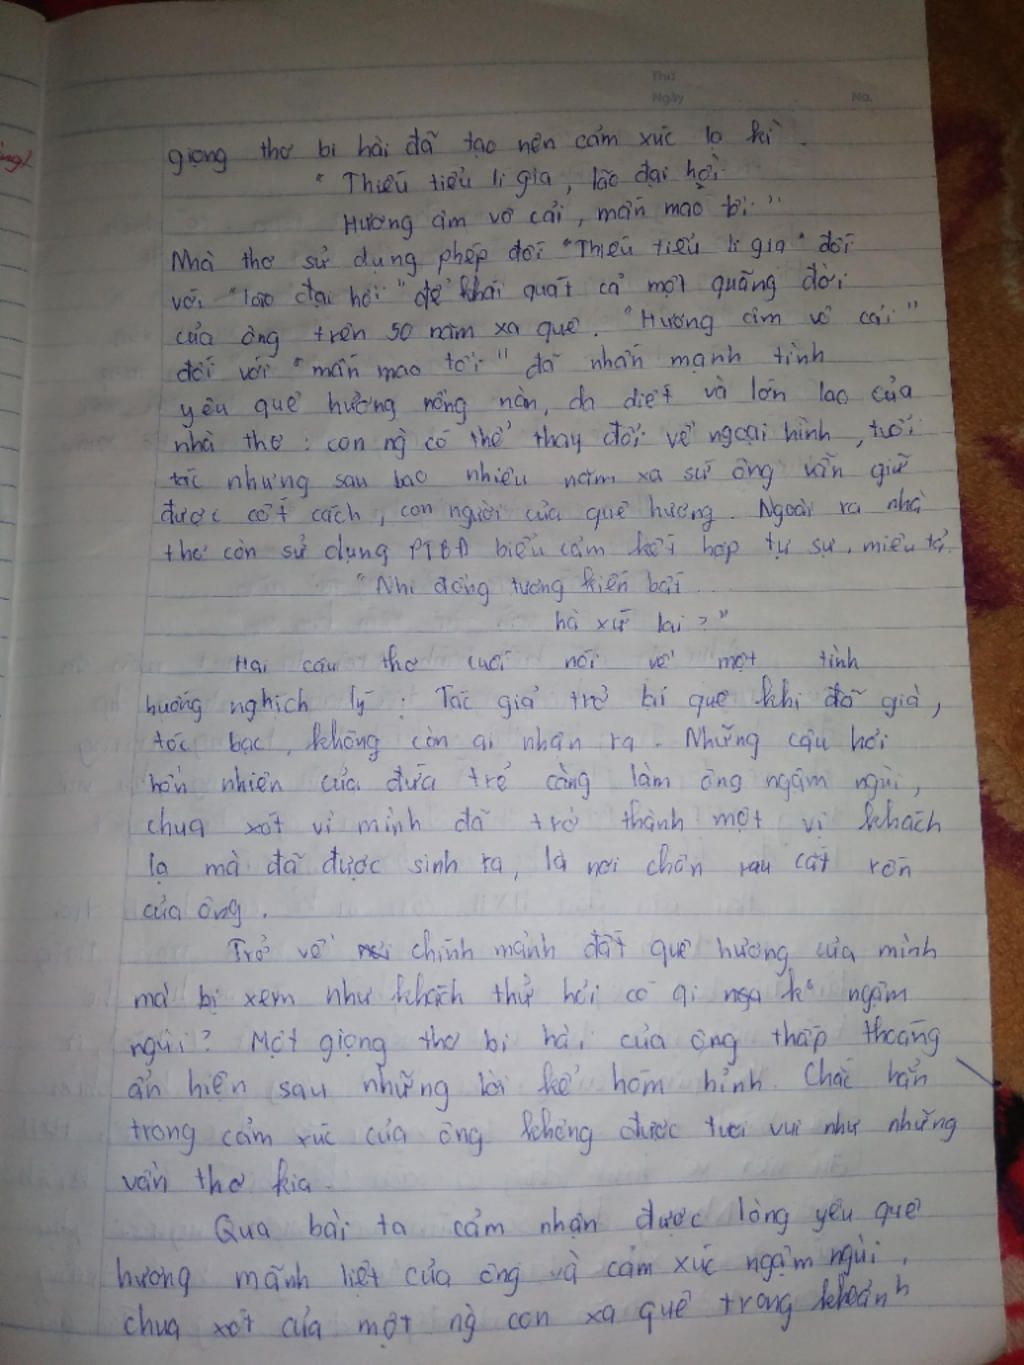 Thứ
Ngày No.
giọng thơ bi hài đã tạo nên cảm xúc lạ kì.
"Thiếu tiểu li gia, lão đại hồi
Hương âm vô cải, mấn mao tồi"
Nhà thơ sử dụng phép đối "Thiếu tiểu li gia" đối
với "lão đại hồi" để khái quát cả một quãng đời
của ông trên 50 năm xa quê. "Hương âm vô cải"
đối với "mấn mao tồi" đã nhấn mạnh tình
yêu quê hương nồng nàn, da diết và lớn lao của
nhà thơ: con ng` có thể thay đổi về ngoại hình, tuổi
tác nhưng sau bao nhiêu năm xa sứ ông vẫn giữ
được cốt cách, con người của quê hương. Ngoài ra nhà
thơ còn sử dụng PTBĐ biểu cảm kết hợp tự sự, miêu tả.
"Nhi đồng tương kiến bất...
hà xứ lai?"
Hai câu thơ cuối nói về một tình
huống nghịch lý: Tác giả trở về quê khi đã già,
tóc bạc, không còn ai nhận ra. Những câu hỏi
hồn nhiên của đứa trẻ càng làm ông ngậm ngùi,
chua xót vì mình đã trở thành một vị khách
lạ mà đã được sinh ra, là nơi chôn rau cắt rốn
của ông.
Trở về nơi chính mảnh đất quê hương của mình
mà bị xem như khách thử hỏi có ai mà k° ngậm
ngùi? Một giọng thơ bi hài của ông thấp thoáng
ẩn hiện sau những lời kể hóm hỉnh. Chắc hẳn
trong cảm xúc của ông không được tươi vui như những
vần thơ kia.
Qua bài ta cảm nhận được lòng yêu quê
hương mãnh liệt của ông và cảm xúc ngậm ngùi,
chua xót của một ng` con xa quê trong khoảnh